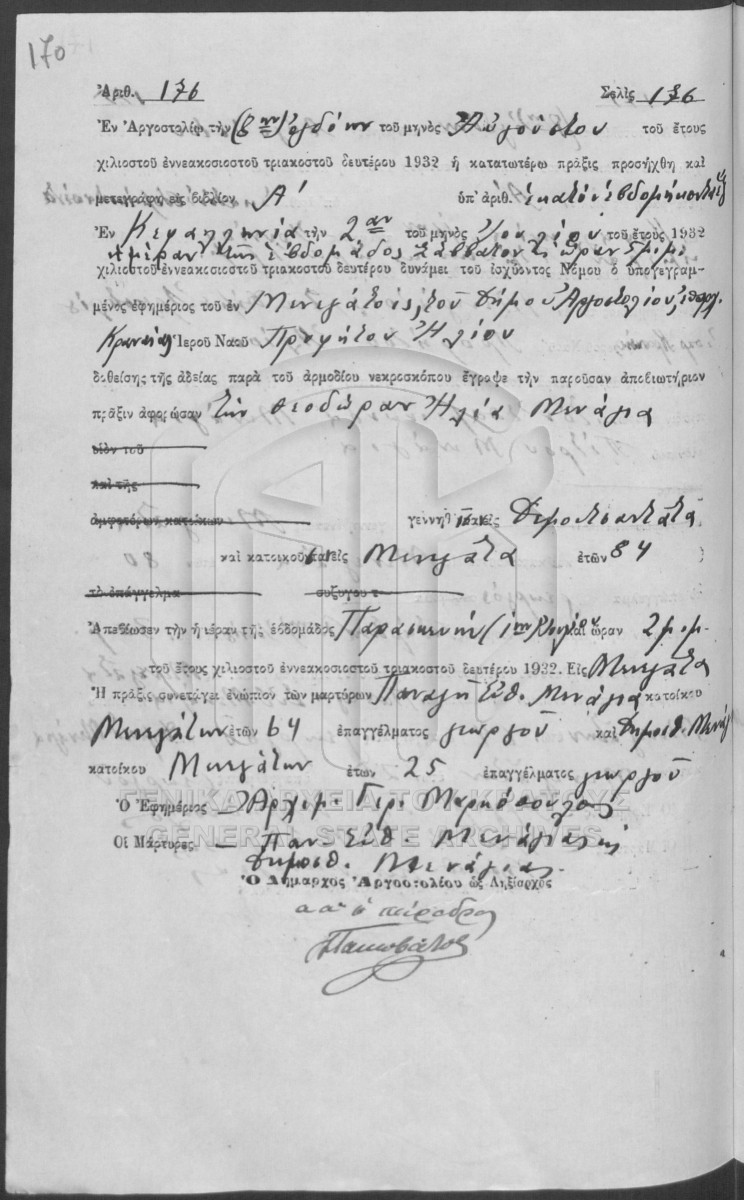 170
Ἀριθ. 176 Σελὶς 176
Ἐν Ἀργοστολίῳ τὴν (7ην) ἑβδόμην τοῦ μηνὸς Αὐγούστου τοῦ ἔτους
χιλιοστοῦ ἐννεακοσιοστοῦ τριακοστοῦ δευτέρου 1932 ἡ κατατωτέρω πρᾶξις προσήχθη καὶ
μετεγράφη εἰς βιβλίον Α' ὑπ' ἀριθ. ἑκατὸν ἑβδομήκοντα ἕξ
Ἐν Κεφαλληνίᾳ τὴν 2αν τοῦ μηνὸς Ἰουλίου τοῦ ἔτους 1932
ἡμέραν τῆς ἑβδομάδος Σάββατον καὶ ὥραν 5 μ.μ.
χιλιοστοῦ ἐννεακοσιοστοῦ τριακοστοῦ δευτέρου δυνάμει τοῦ ἰσχύοντος Νόμου ὁ ὑπογεγραμ-
μένος ἐφημέριος τοῦ ἐν Μινιάτοις, τοῦ Δήμου Ἀργοστολίου,
Κρανείας Ἱεροῦ Ναοῦ Προφήτου Ἠλίου
δοθείσης τῆς ἀδείας παρὰ τοῦ ἁρμοδίου νεκροσκόπου ἔγραψε τὴν παροῦσαν ἀποβιωτήριον
πρᾶξιν ἀφορῶσαν τὴν Θεοδώραν Ἠλία Μινάγια
υἱὸν τοῦ
καὶ τῆς
ἀμφοτέρων κατοίκων γεννηθ εἰς Δημουτσαντάτα
καὶ κατοικοῦ εἰς Μινιάτα ἐτῶν 84
τὸ ἐπάγγελμα συζύγου τ
Ἀπεβίωσεν τὴν ἡμέραν τῆς ἑβδομάδος Παρασκευὴν (1ην) Ἰουλίου καὶ ὥραν 2 μ.μ.
τοῦ ἔτους χιλιοστοῦ ἐννεακοσιοστοῦ τριακοστοῦ δευτέρου 1932. Εἰς Μινιάτα
Ἡ πρᾶξις συνετάγει ἐνώπιον τῶν μαρτύρων Παναγῆ Εὐθ. Μινάγια κατοίκου
Μινιάτων ἐτῶν 64 ἐπαγγέλματος γεωργοῦ καὶ Δημοσθ. Μινάγια
κατοίκου Μινιάτων ἐτων 25 ἐπαγγέλματος γεωργοῦ
Ὁ Ἐφημέριος Ἀρχιμ. Γερ. Μαρκόπουλος
Οἱ Μάρτυρες. Παν. Εὐθ. Μινάγιας
Δημοσθ. Μινάγιας
Ὁ Δήμαρχος Ἀργοστολίου ὡς Ληξίαρχος
α.α. ὁ πάρεδρος
ΓΕΝΙΚΑ ΑΡΧΕΙΑ ΤΟΥ ΚΡΑΤΟΥΣ
GENERAL STATE ARCHIVES